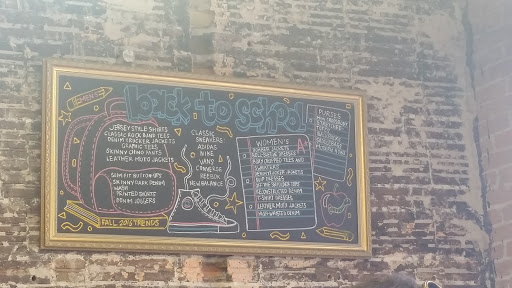 back to school
MEN'S
JERSEY STYLE SHIRTS
CLASSIC ROCK BAND TEES
DENIM TRUCKER JACKETS
GRAPHIC TEES
SKINNY CHINO PANTS
LEATHER MOTO JACKETS
SLIM FIT BUTTON-UPS
SKINNY DARK DENIM
WASH
PRINTED SHORTS
DENIM JOGGERS
FALL 2016 TRENDS
CLASSIC
SNEAKERS
ADIDAS
NIKE
VANS
CONVERSE
REEBOK
NEW BALANCE
WOMEN'S
A+
BOMBER JACKETS
CROPPED TEES AND
SWEATERS
DENIM TRUCKER JACKETS
SLIP DRESSES
OFF THE SHOULDER TOPS
DECONSTRUCTED DENIM
T-SHIRT DRESSES
LEATHER MOTO JACKETS
HIGH WAISTED DENIM
PURSES